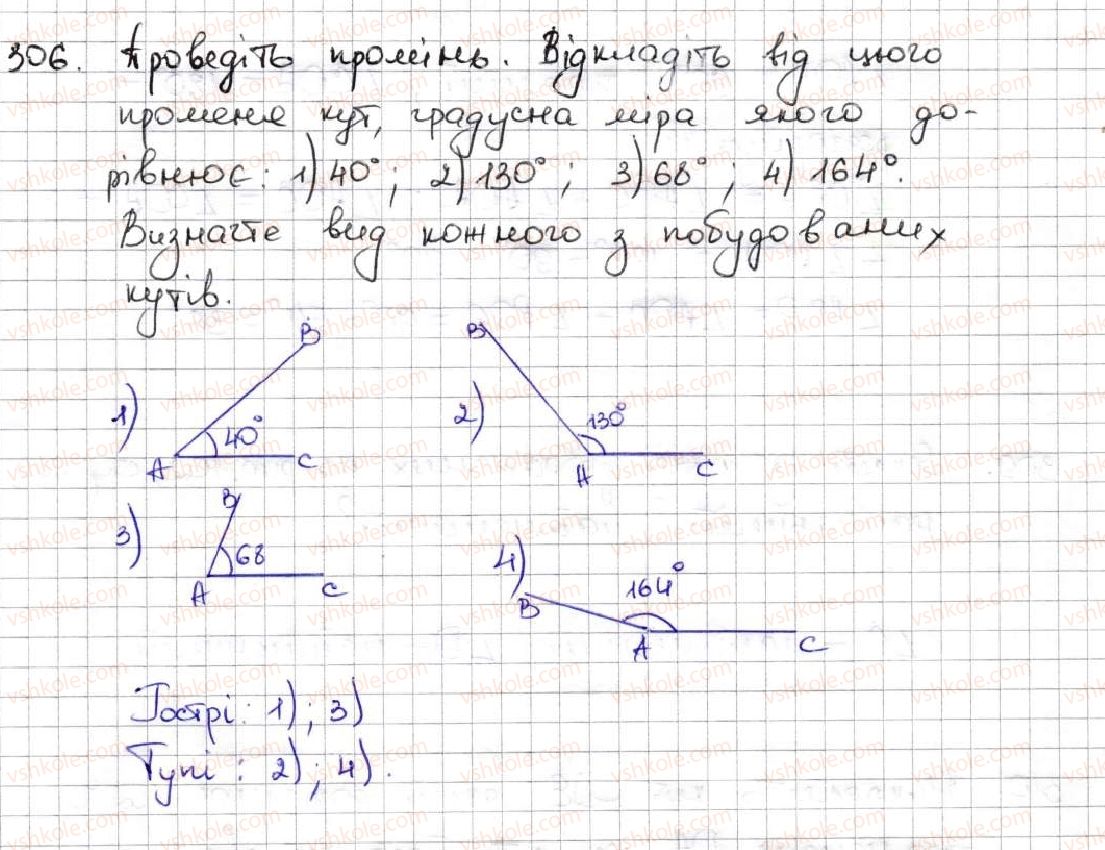 306. Проведіть промінь. Відкладіть від цього
променя кут, градусна міра якого до-
рівнює: 1) 40°; 2) 130°; 3) 68°; 4) 164°.
Визначте вид кожного з побудованих
кутів.
1) B 40° A C
2) B 130° A C
3) B 68 A C
4) B 164° A C
Гострі: 1); 3)
Тупі: 2); 4).
vshkole.com